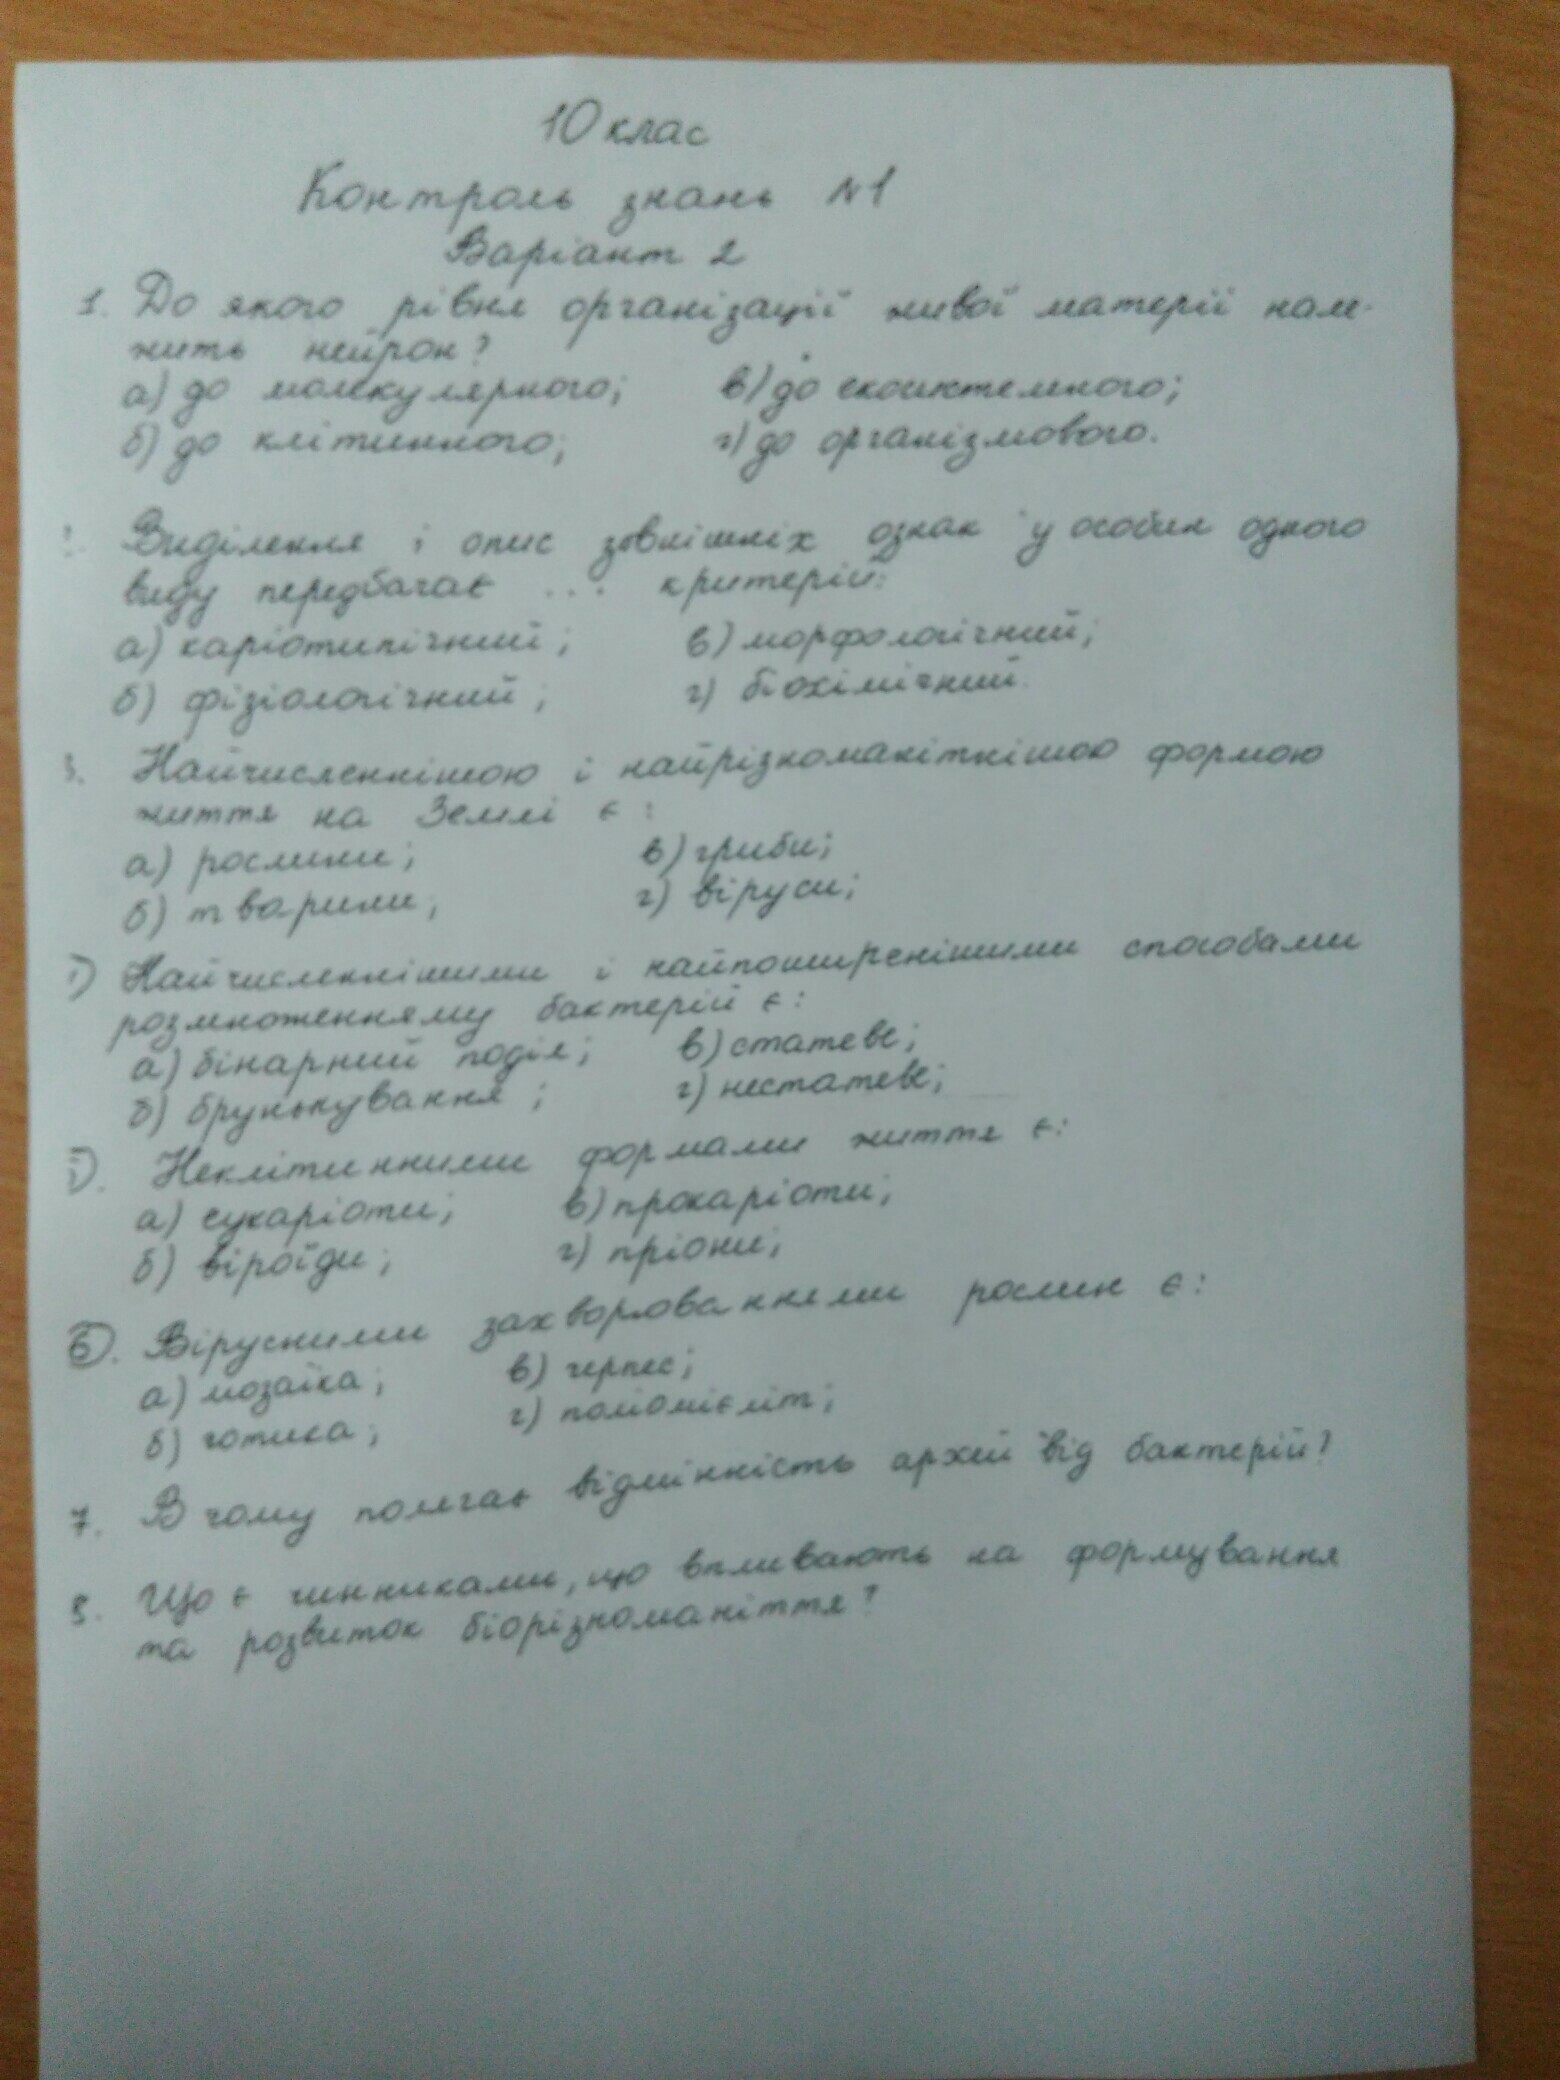 10 клас
Контроль знань №1
Варіант 2
1. До якого рівня організації живої матерії нале-
жить нейрон?
а) до молекулярного; в) до екосистемного;
б) до клітинного; г) до організмового.
Виділення і опис зовнішніх ознак у особин одного
виду передбачає ... критерій:
а) каріотипічний; в) морфологічний;
б) фізіологічний; г) біохімічний.
3. Найчисленнішою і найрізноманітнішою формою
життя на Землі є:
а) рослини; в) гриби;
б) тварини; г) віруси;
Найчисленнішими і найпоширенішими способами
розмноженняму бактерій є:
а) бінарний поділ; в) статеве;
б) брунькування; г) нестатеве;
Неклітинними формами життя є:
а) еукаріоти; в) прокаріоти;
б) віроїди; г) пріони;
6. Вірусними захворюваннями рослин є:
а) мозаїка; в) герпес;
б) готика; г) поліомієліт;
7. В чому полягає відмінність архей від бактерій?
8. Що є чинниками, що впливають на формування
та розвиток біорізноманіття?